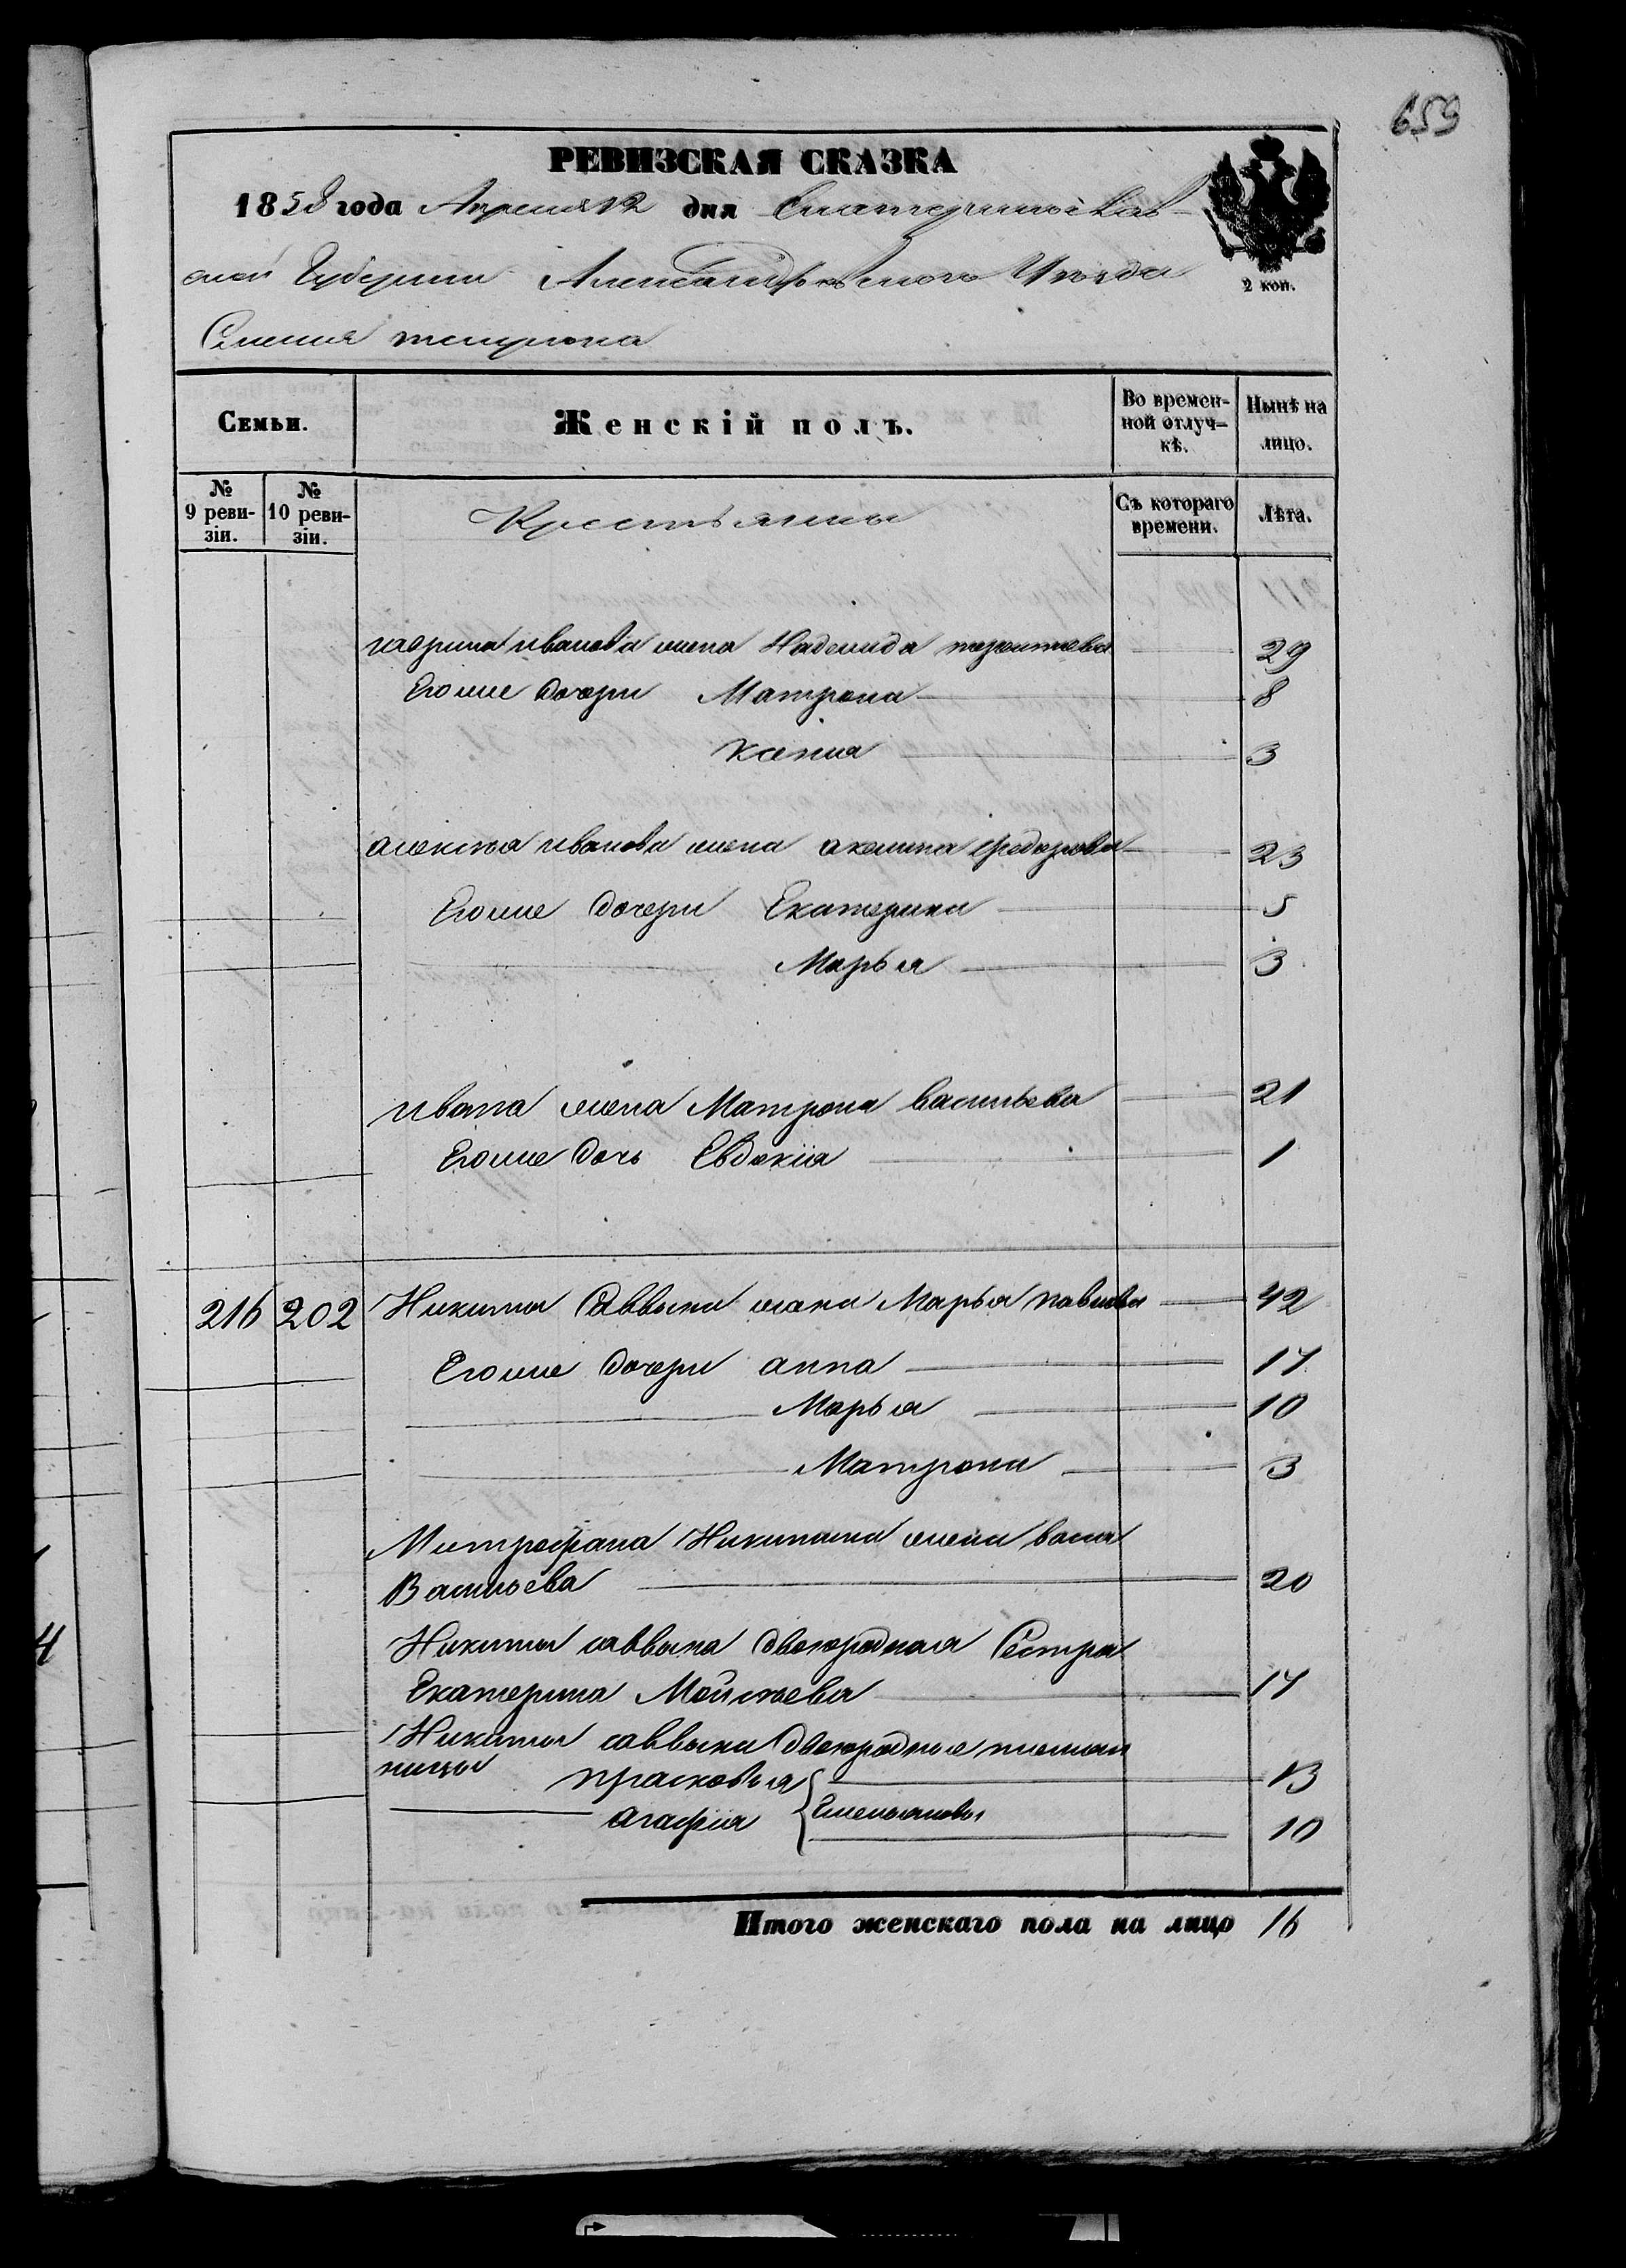 659
РЕВИЗСКАЯ СКАЗКА
1858 года Апреля 12 дня Екатеринослав-
ской Губернии Александровского Уѣзда
Селения
2 коп.
Семьи. Женскій полъ. Во времен-ной отлуч-кѣ. Нынѣ на лицо.
№ 9 реви-зіи. № 10 реви-зіи. Крестьянки Съ котораго времени. Лѣта.
гаврила иванова жена Надежида терентиева 29
Егоже дочери Матрона 8
Ксения 3
алексѣя иванова жена акелина федорова 23
Егоже дочери Екатерина 5
Марья 3
ивана жена Матрона васильева 21
Егоже дочь Евдокія 1
216 202 Никиты Саввына жена Марья павлова 42
Егоже дочери анна 17
Марья 10
Матрона 3
Митрофана Никитина жена васа
Васильева 20
Никиты саввына двоюродная Сестра
Екатерина Мойсѣева 17
Никиты саввына двоюродные племян
ницы прасковья 13
агафія Емельяновы 10
Итого женскаго пола на лицо 16